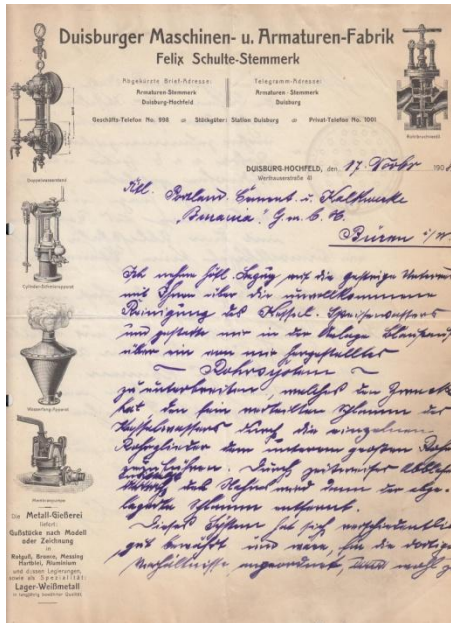 Duisburger Maschinen- u. Armaturen-Fabrik
Felix Schulte-Stemmerk
Abgekürzte Brief-Adresse:
Armaturen-Stemmerk
Duisburg-Hochfeld
Telegramm-Adresse:
Armaturen-Stemmerk
Duisburg
Geschäfts-Telefon No. 998
Stückgüter: Station Duisburg
Privat-Telefon No. 1001
DUISBURG-HOCHFELD, den 17. 190
Werthauserstraße
Portland Cement u. Kalkwerke
G.m.b.H.
Büren i/W.
Ich nehme höfl. Bezug auf die gestrige
mit Ihnen über die unvollkommene
Reinigung des Kessel-Speisewassers
und gestatte mir in der Anlage
über ein von mir hergestelltes
— Rohrsystem —
zu unterbreiten, welches den Zweck
hat den fein verteilten Schlamm des
Kesselwassers durch die einzelnen
Rohrglieder dem unteren großen
zuzuführen. Durch zeitweises
des wird dann der abge-
lagerte Schlamm entfernt.
Dieses System hat sich
gut bewährt und wäre, für die dortigen
Verhältnisse angeordnet, wohl
Doppelwasserstand
Cylinder-Schmierapparat
Die Metall-Gießerei
liefert:
Gußstücke nach Modell
oder Zeichnung
in
Rotguß, Bronce, Messing
Hartblei, Aluminium
und dessen Legierungen,
sowie als Spezialität:
Lager-Weißmetall
in langjährig bewährter Qualität.